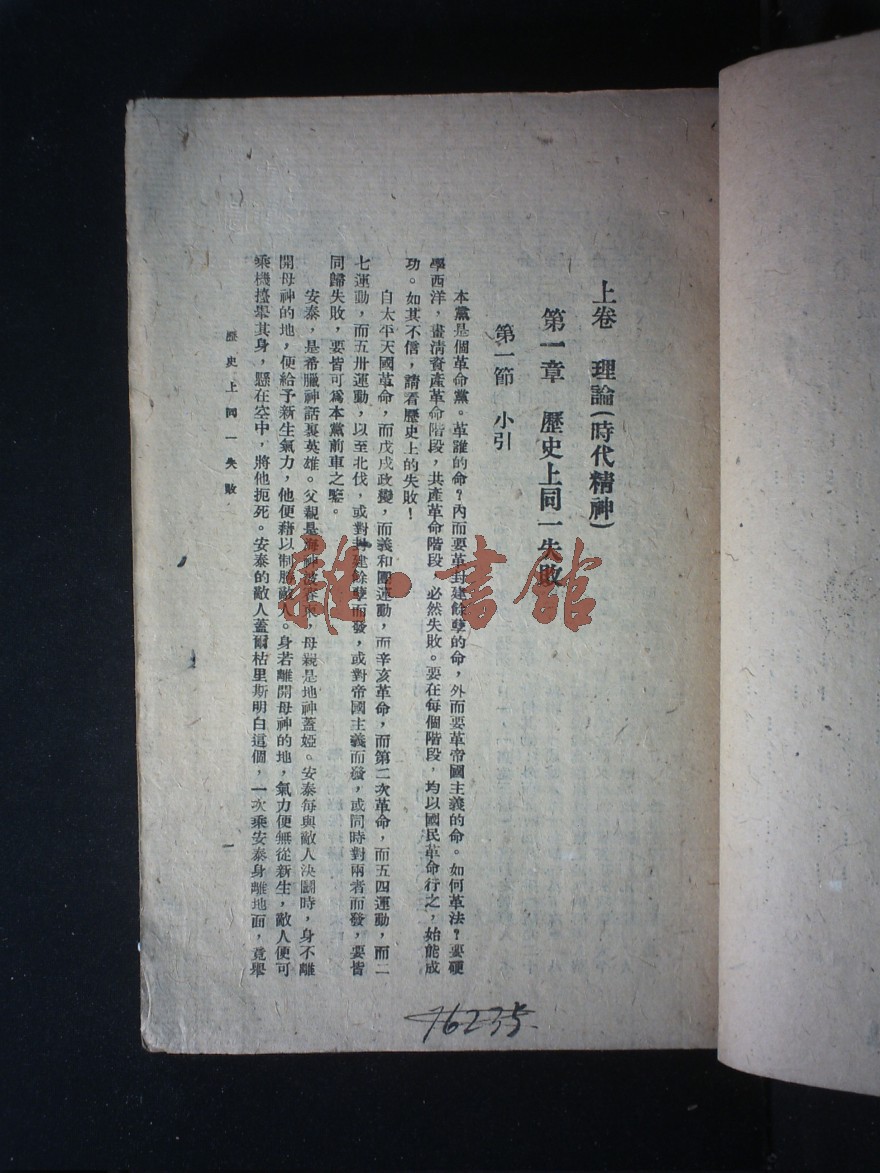 上卷　理論（時代精神）
第一章　歷史上同一失敗
第一節　小引
本黨是個革命黨。革誰的命？內而要革封建餘孽的命，外而要革帝國主義的命。如何革法？要硬
學西洋，畫清資產革命階段，共產革命階段，必然失敗。要在每個階段，均以國民革命行之，始能成
功。如其不信，請看歷史上的失敗！
自太平天國革命，而戊戌政變，而義和團運動，而辛亥革命，而第二次革命，而五四運動，而二
七運動，而五卅運動，以至北伐，或對封建餘孽而發，或對帝國主義而發，或同時對兩者而發，要皆
同歸失敗，要皆可為本黨前車之鑒。
安泰，是希臘神話裏英雄。父親是海神，母親是地神蓋婭。安泰每與敵人決鬭時，身不離
開母神的地，便給予新生氣力，他便藉以制勝敵人。身若離開母神的地，氣力便無從新生，敵人便可
乘機擡舉其身，懸在空中，將他扼死。安泰的敵人蓋爾枯里斯明白這個，一次乘安泰身離地面，竟舉
歷史上同一失敗
一
雜·書館
46235